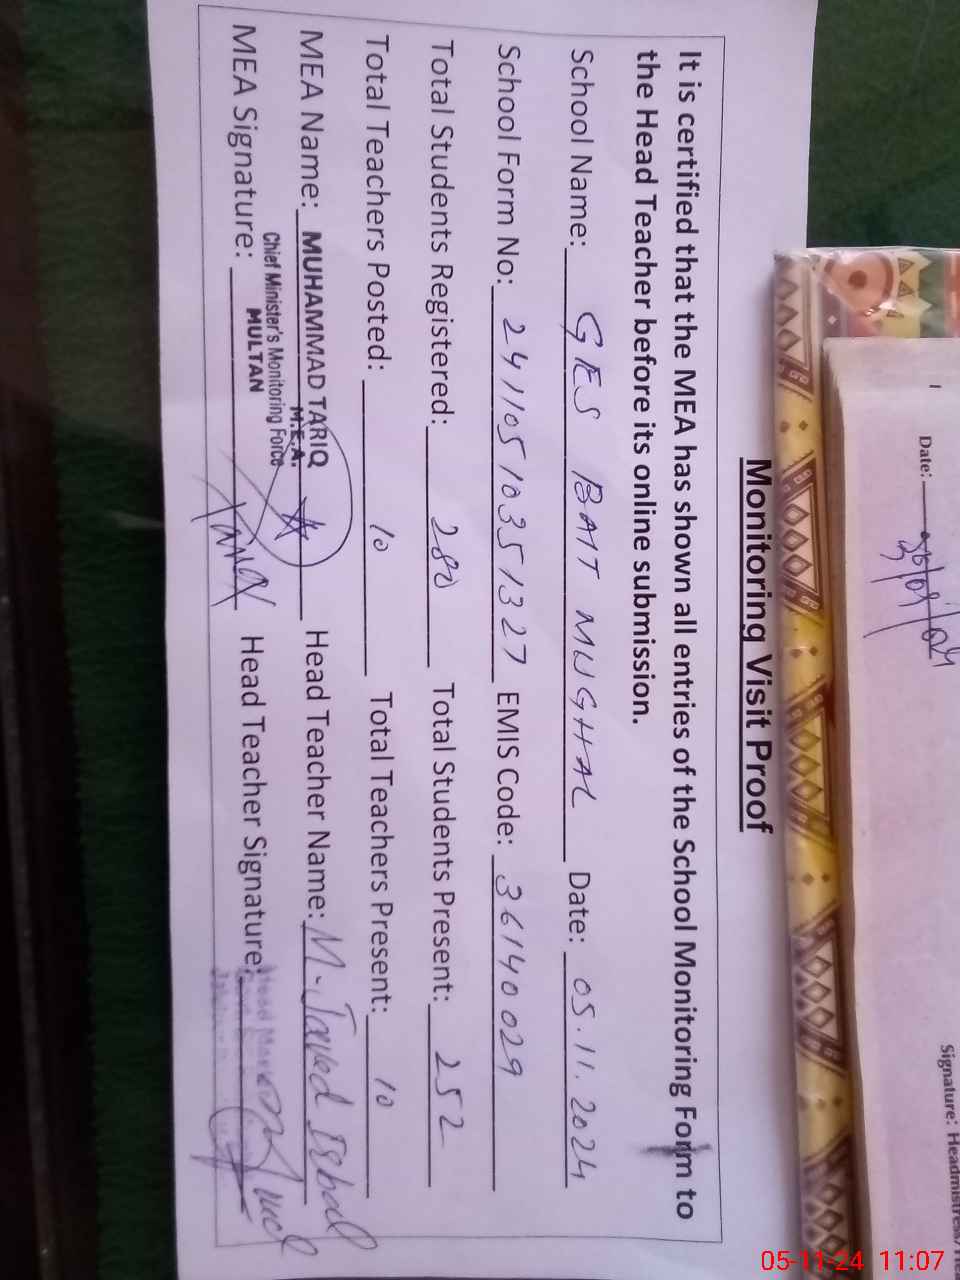 Monitoring Visit Proof
It is certified that the MEA has shown all entries of the School Monitoring Form to
the Head Teacher before its online submission.
School Name: GES BAIT MUGHAL Date: 05.11.2024
School Form No: 24110510351327 EMIS Code: 36140029
Total Students Registered: 280 Total Students Present: 252
Total Teachers Posted: 10 Total Teachers Present: 10
MEA Name: MUHAMMAD TARIQ Head Teacher Name: M. Javed Iqbal
M.E.A.
Chief Minister's Monitoring Force
MULTAN
MEA Signature: Head Teacher Signature:
Head Master
Date:
Signature: Headmistress/
05-11-24 11:07